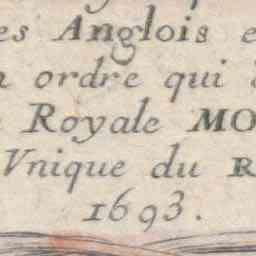 es Anglois e
ordre qui
Royale MO
Vnique du R
1693.